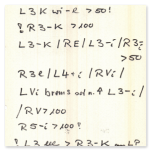 L3K wi-e > 50!
? R3-K > 100
L3-K / RE / L3-i / R3=
> 50
R3e / L4+i / RVi /
LVi brems od. n. ? L3-i /
/ RV > 100
R5-i > 100!
> R3-K